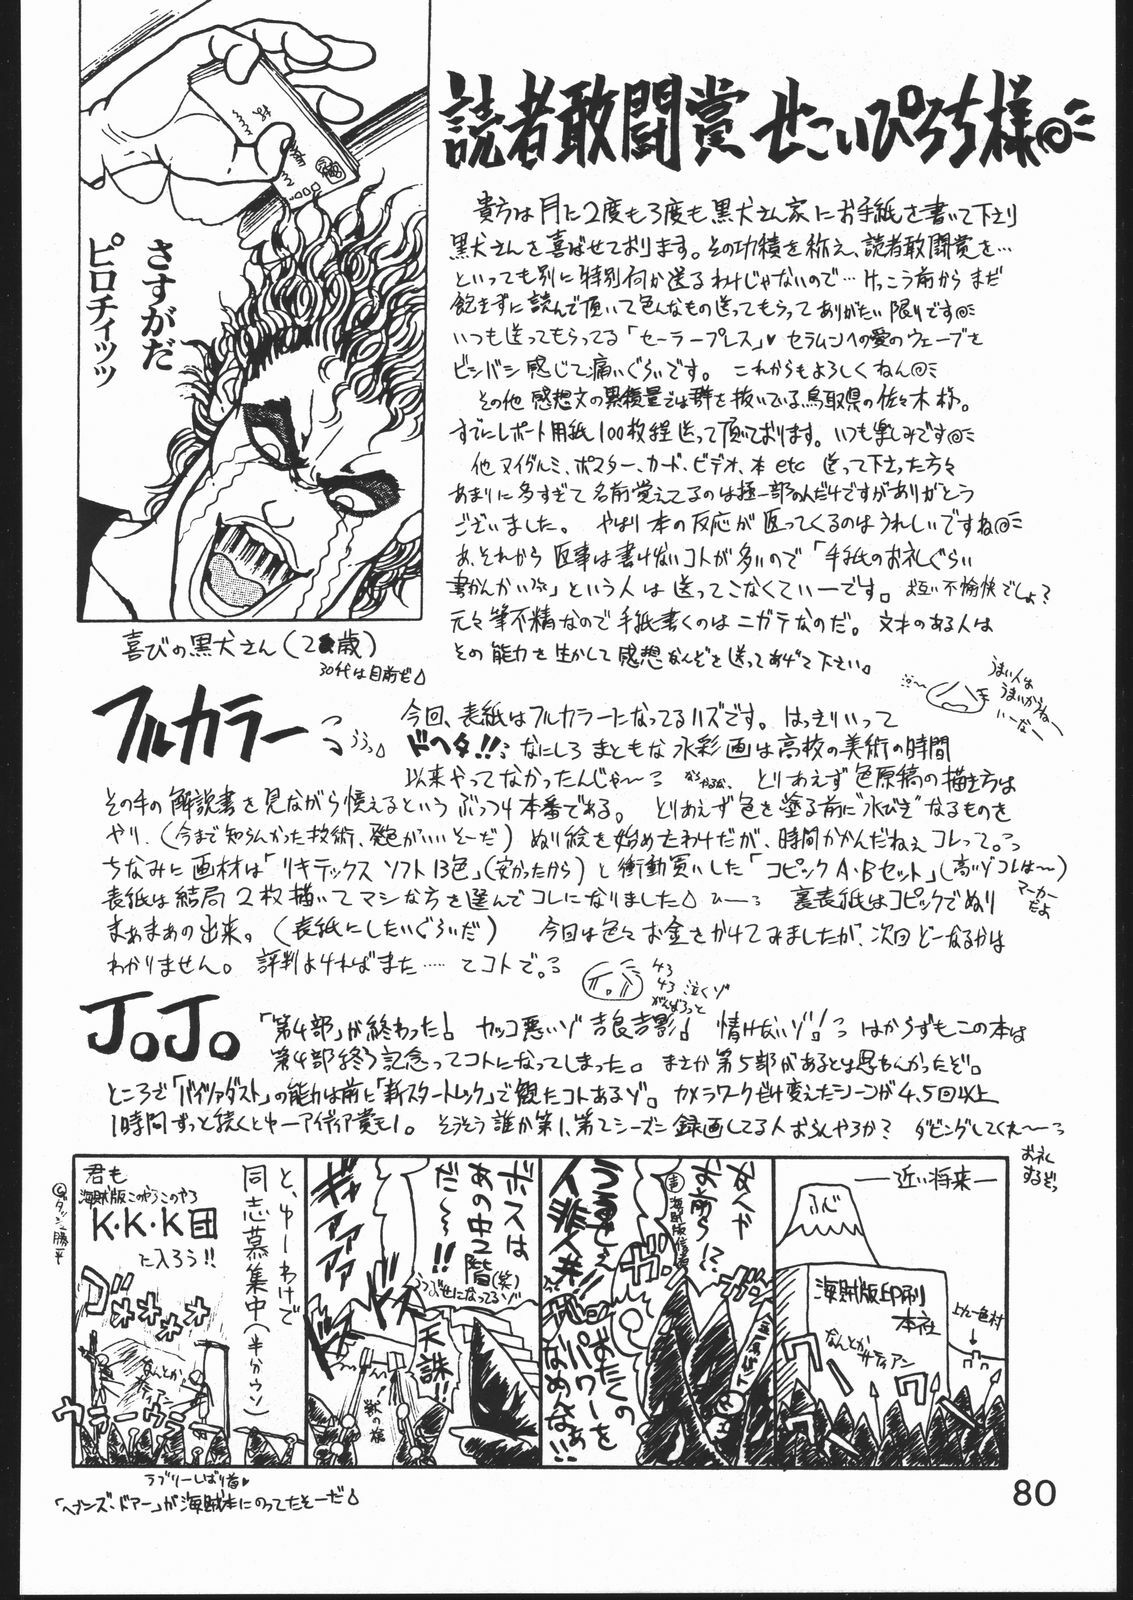 読者敢闘賞 せこいぴろち様
さすがだ
ピロチィッッ
貴方は月に2度も3度も黒犬さん家にお手紙を書いて下さり
黒犬さんを喜ばせております。その功積を称え、読者敢闘賞を…
といっても別に特別何か送るわけじゃないので…けっこう前からまだ
飽きずに読んで頂いて色んなもの送ってもらってありがたい限りです
いつも送ってもらってる「セーラープレス」♥セラムンへの愛のウェーブを
ビシバシ感じて痛いぐらいです。これからもよろしくねん
その他感想文の累積量では群を抜いている鳥取県の佐々木様。
すでにレポート用紙100枚程送って頂いております。いつも楽しみです
他ヌイグルミ、ポスター、カード、ビデオ、本etc送って下さった方々
あまりに多すぎて名前覚えてるのは極一部の人だけですがありがとう
ございました。やはり本の反応が返ってくるのはうれしいですね
あ、それから返事は書けないコトが多いので「手紙のお礼ぐらい
書かんかい」という人は送ってこなくていーです。お互い不愉快でしょ?
元々筆不精なので手紙書くのはニガテなのだ。文才のある人は
その能力を生かして感想なんぞを送ってあげて下さい。
うまい人は
うまいからねー
いーなー
喜びの黒犬さん(2 歳)
30代は目前だ
フルカラー
ううっ
今回、表紙はフルカラーになってるハズです。はっきりいって
ドヘタ!!なにしろまともな水彩画は高校の美術の時間
以来やってなかったんじゃ〜 とりあえず色原稿の描き方は
その手の解説書を見ながら憶えるというぶっつけ本番である。とりあえず色を塗る前に"水びき"なるものを
やり、(今まで知らんかった技術、発色がいいそーだ)ぬり絵を始めたわけだが、時間かかんだねぇコレって。
ちなみに画材は「リキテックスソフト13色」(安かったから)と衝動買いした「コピックA・Bセット」(高いゾコレは〜)
マーカーだよ
表紙は結局2枚描いてマシな方を選んでコレになりました ひーっ 裏表紙はコピックでぬり
まぁまぁの出来。(表紙にしたいぐらいだ) 今回は色々お金をかけてみましたが、次回どーなるかは
わかりません。評判よければまた……てコトで。
泣くゾ
JoJo
「第4部」が終わった! カッコ悪いゾ吉良吉影! 情けないゾ! はからずもこの本は
第4部終了記念ってコトになってしまった。まさか第5部があるとは思わんかったぞ。
ところで「バイツァダスト」の能力は前に「新スタートレック」で観たコトあるゾ。カメラワークだけ変えたシーンが4、5回以上
1時間ずっと続くとゆーアイディア賞もの。そうそう誰か第1、第2シーズン録画してる人おらんやろか? ダビングしてくれ〜
お礼
するぞっ
―近い将来―
ふじ
海賊版印刷
本社
なんとか
サティアン
上九一色村
なんや
お前ら!?
うるせぇ
人非人共!!
おたくの
パワーを
なめんなぁ!!
ボスは
あの中2階(笑)
だ〜〜!!
ギャアアアア
天誅!!
と、ゆーわけで
同志募集中(半分ウソ)
君も
海賊版このやろこのやろ
K・K・K団
に入ろう!!
ゴオオオオ
なんとか
サティアン
ウラーウラー
ラブリーしばり首♥
「ヘブンズ・ドアー」が海賊本にのってたそーだ
80